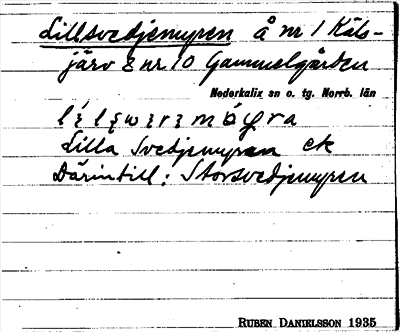 Lillsvedjemyren å nr 1 Käls-
järv & nr 10 Gammelgården
Nederkalix sn o. tg. Norrb. län
Lilla Svedjemyren ek
Därintill: Storsvedjemyren
RUBEN DANIELSSON 1935